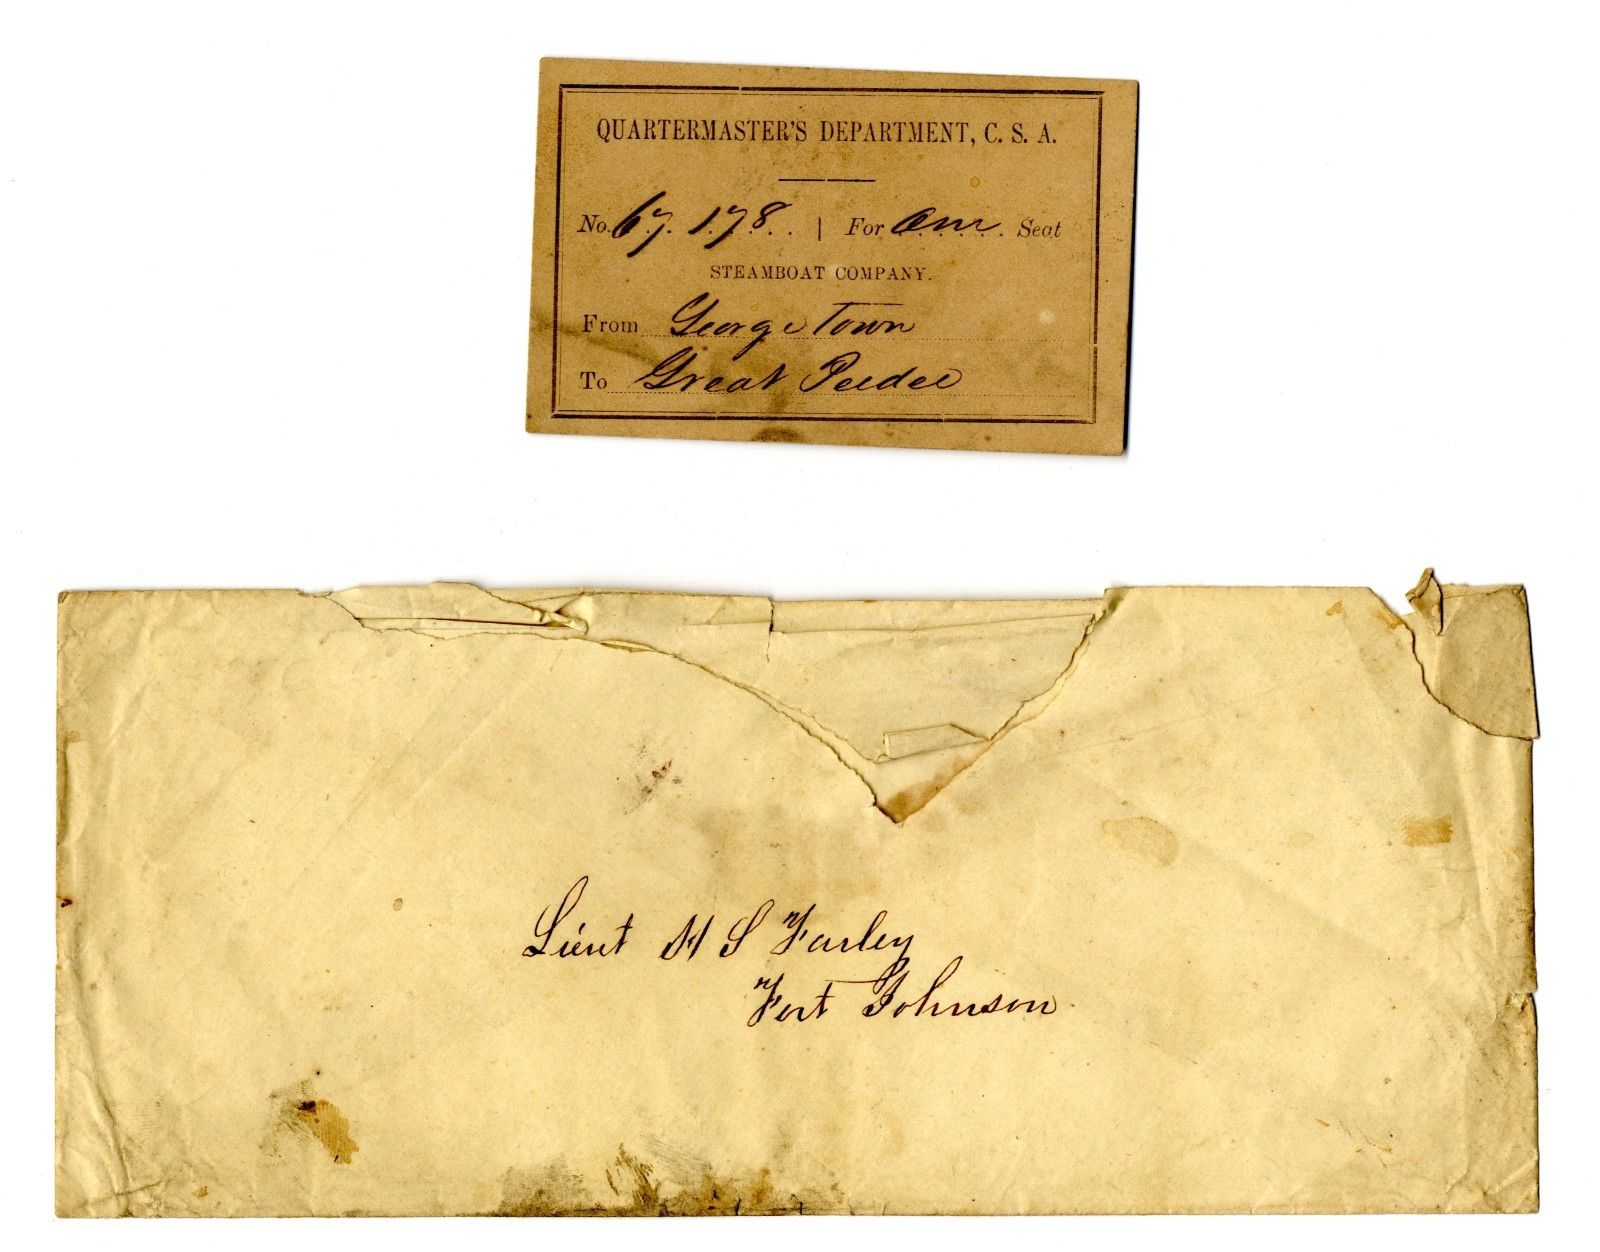 QUARTERMASTER'S DEPARTMENT, C. S. A.
No. 67. 178. | For One Seat
STEAMBOAT COMPANY.
From George Town
To Great Peedee
Lieut H S Farley
Fort Johnson